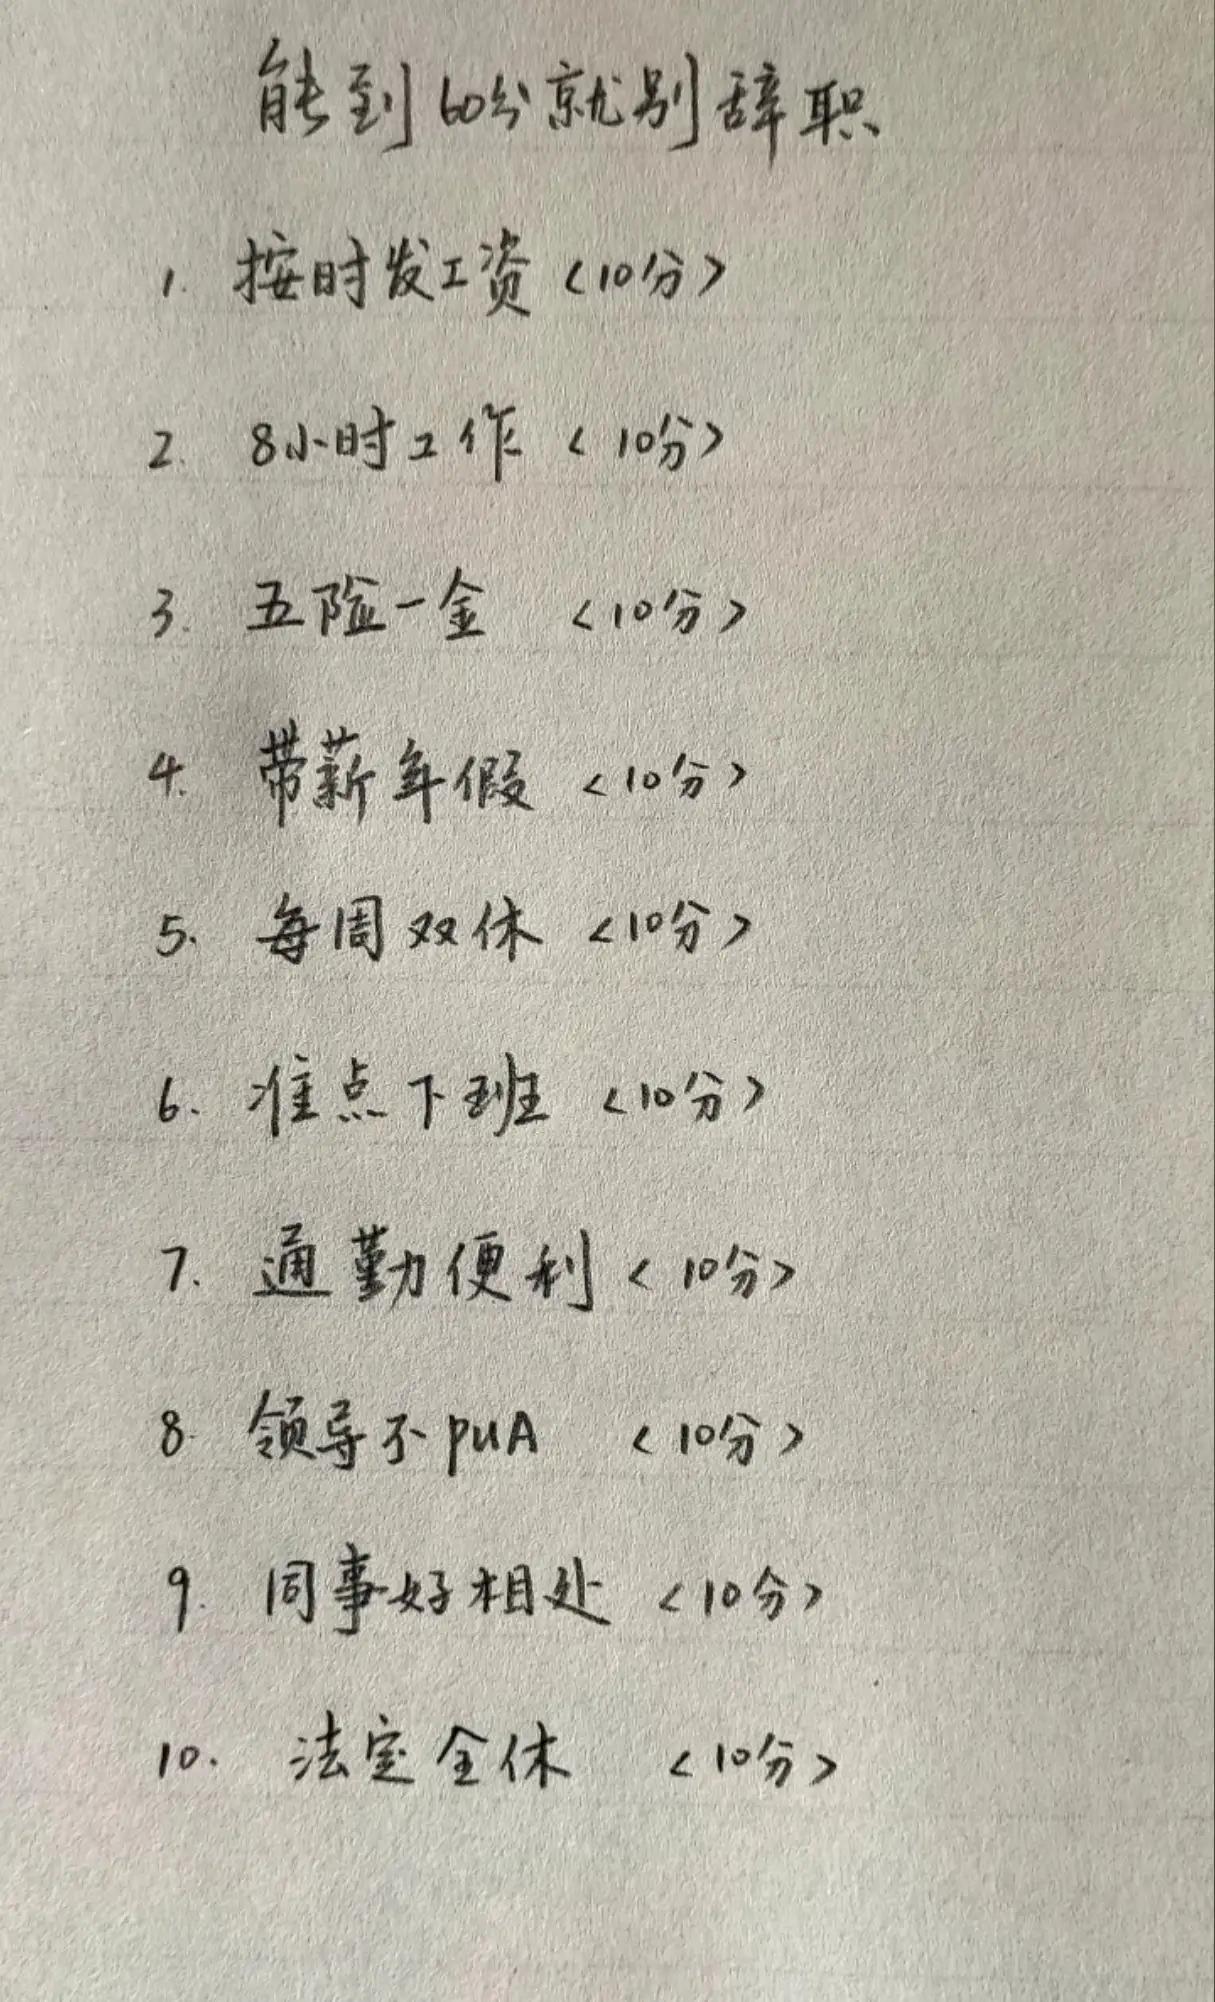 能到60分就别辞职
1. 按时发工资<10分>
2. 8小时工作<10分>
3. 五险一金 <10分>
4. 带薪年假<10分>
5. 每周双休<10分>
6. 准点下班<10分>
7. 通勤便利<10分>
8. 领导不PUA <10分>
9. 同事好相处<10分>
10. 法定全休 <10分>